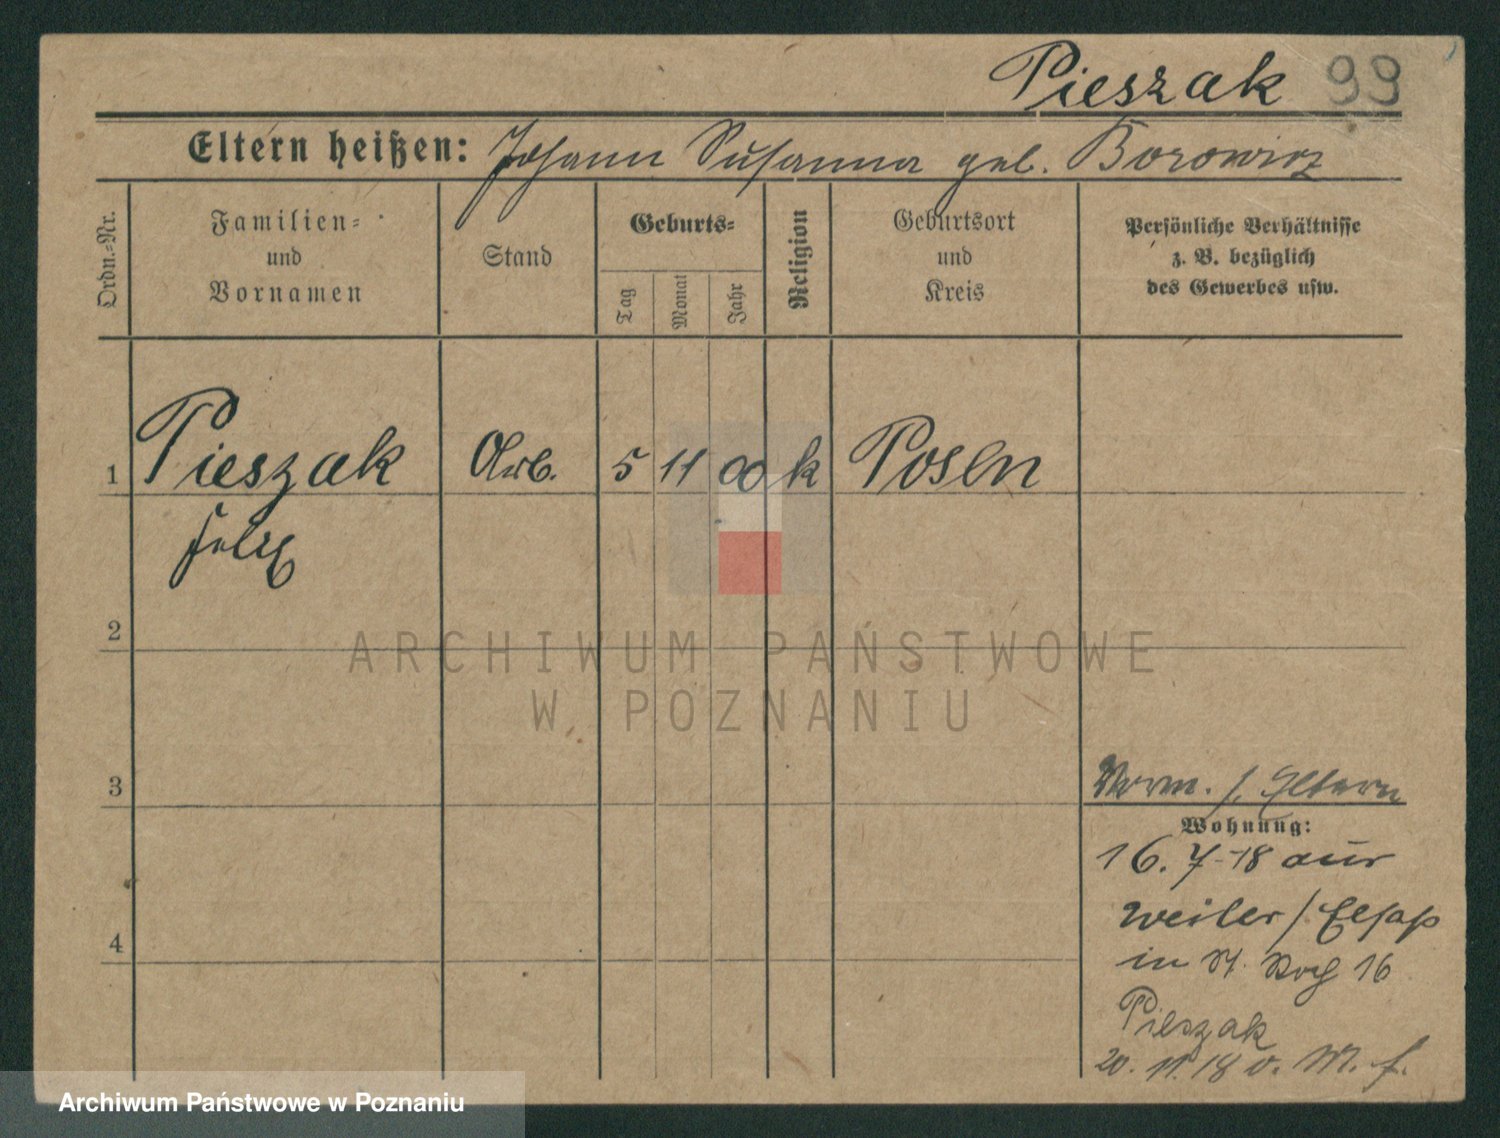 Pieszak 99
Eltern heißen: Johann Susanna geb. Borowicz
Ordn.=Nr.
Familien=
und
Vornamen
Stand
Geburts=
Tag
Monat
Jahr
Religion
Geburtsort
und
Kreis
Persönliche Verhältnisse
z. B. bezüglich
des Gewerbes usw.
1 Pieszak Arb. 5 11 00 k Posen
Felix
2
ARCHIWUM PAŃSTWOWE
W POZNANIU
3
Verm. s. Eltern
Wohnung:
16. 7.18 aus
Weiler / Elsaß
in St. Roch 16
4
Pieszak
20. 11. 18 v. M. f.
Archiwum Państwowe w Poznaniu